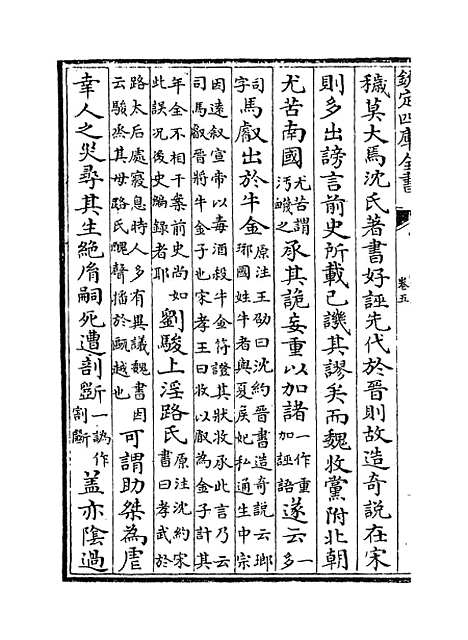 欽定四庫全書
卷五
穢莫大焉沈氏著書好誣先代於晉則故造奇説在宋
則多出謗言前史所載已譏其謬矣而魏收黨附北朝
尤苦南國尤苦謂汚衊之承其詭妄重以加諸一作重加誣語遂云一多
司字馬叡出於牛金原注王劭曰沈約晉書造奇説云瑯琊國姓牛者與夏侯妃私通生中宗
因逺叙宣帝以毒酒殺牛金符證其狀收承此言乃云司馬叡晉將牛金子也宋孝王曰收以叡為金子計其
年全不相干案前史尚如此誤況後史編録者耶劉駿上淫路氏原注沈約宋書曰孝武於
路太后處寢息時人多有異議魏書因云駿烝其母路氏醜聲播於甌越也可謂助桀為虐
幸人之災尋其生絶胤嗣死遭剖斵一譌作割斷蓋亦隂過